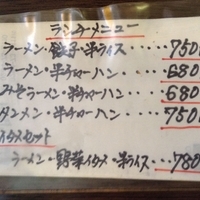 ランチメニュー
ラーメン・餃子・半ライス・・・・・750
ラーメン・半チャーハン・・・・・680
みそラーメン・半チャーハン・・・・680
タンメン・半チャーハン・・・・・750
イタメセット
ラーメン・野菜イタメ・半ライス・・・780